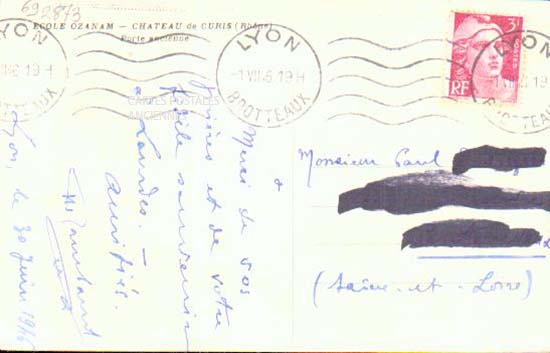 692873
ECOLE OZANAM — CHATEAU de CURIS (Rhône)
Porte ancienne
LYON
BROTTEAUX
LYON
19 H
BROTTEAUX
3F
RF
LYON
BROTTEAUX
CARTES POSTALES
ANCIENNES
Merci de vos
prières et de votre
fidèle souvenir
à Lourdes. —
Amitiés.
Lyon, le 30 Juin 1946
Monsieur Paul
(Saône-et-Loire)